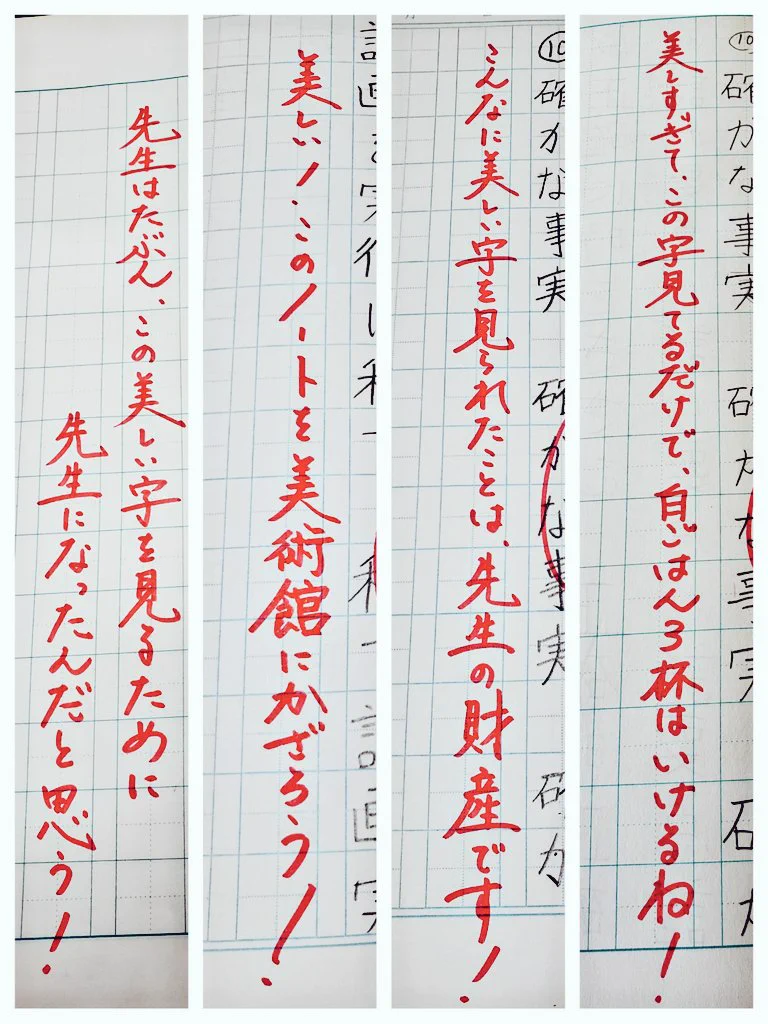 ⑩確かな事実 確かな事実 確か
美しすぎて、この字見てるだけで、白ごはん3杯はいけるね!
⑩確かな事実 確かな事実 確か
こんなに美しい字を見られたことは、先生の財産です!
計画を実行に
美しい!このノートを美術館にかざろう!
先生はたぶん、この美しい字を見るために
先生になったんだと思う!